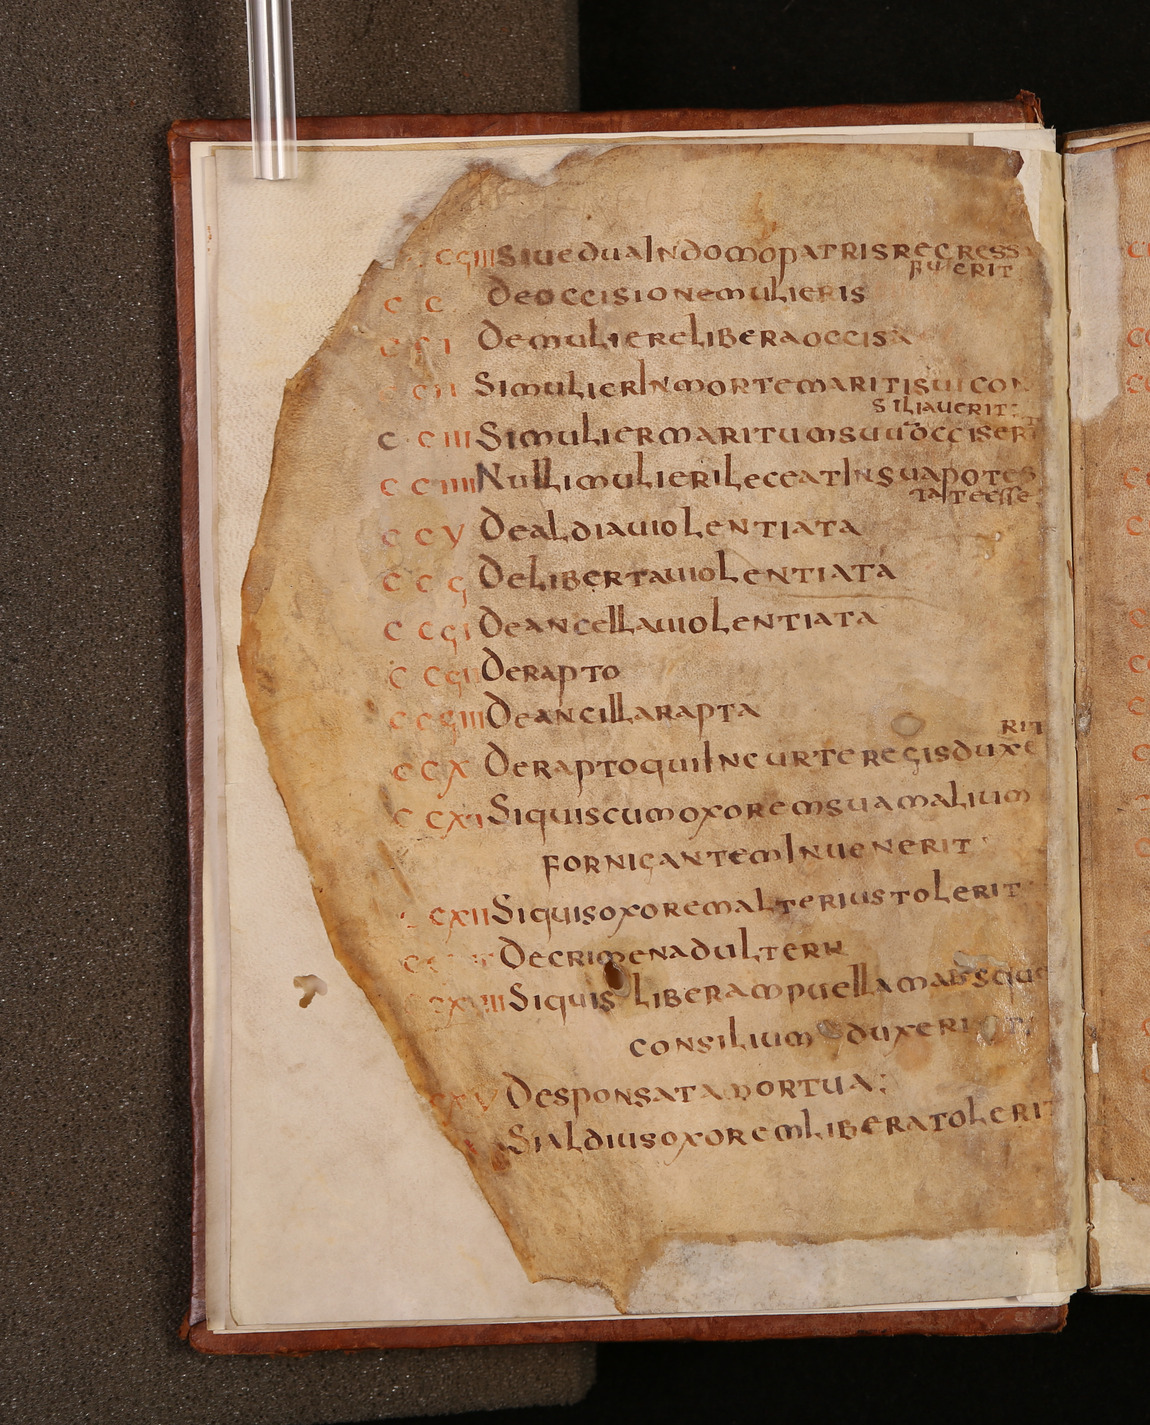 CCϛIIII Siue dua In domo patris regress
fuerit
CC De occisione mulieris
CCI De muliere libera occisa
CCII Si mulier In morte mariti sui con
siliauerit
CCIII Si mulier maritum suu occiser
CCIIII Nulli mulieri leceat In sua potes
tate esse
CCV De aldia uiolentiata
CCϛ De liberta uiolentiata
CCϛI De ancella uiolentiata
CCϛII De rapto
CCϛIII De ancilla rapta
rit
CCX De rapto qui In curte regis duxe
CCXI Si quis cum oxorem sua malium
fornicantem Inuenerit
CXII Si quis oxorem alterius tolerit
De crimen adulterii
CXIIII Si quis liberam puella mabsque
consilium duxerit
CXV De sponsata mortua;
Si aldius oxorem libera tolerit